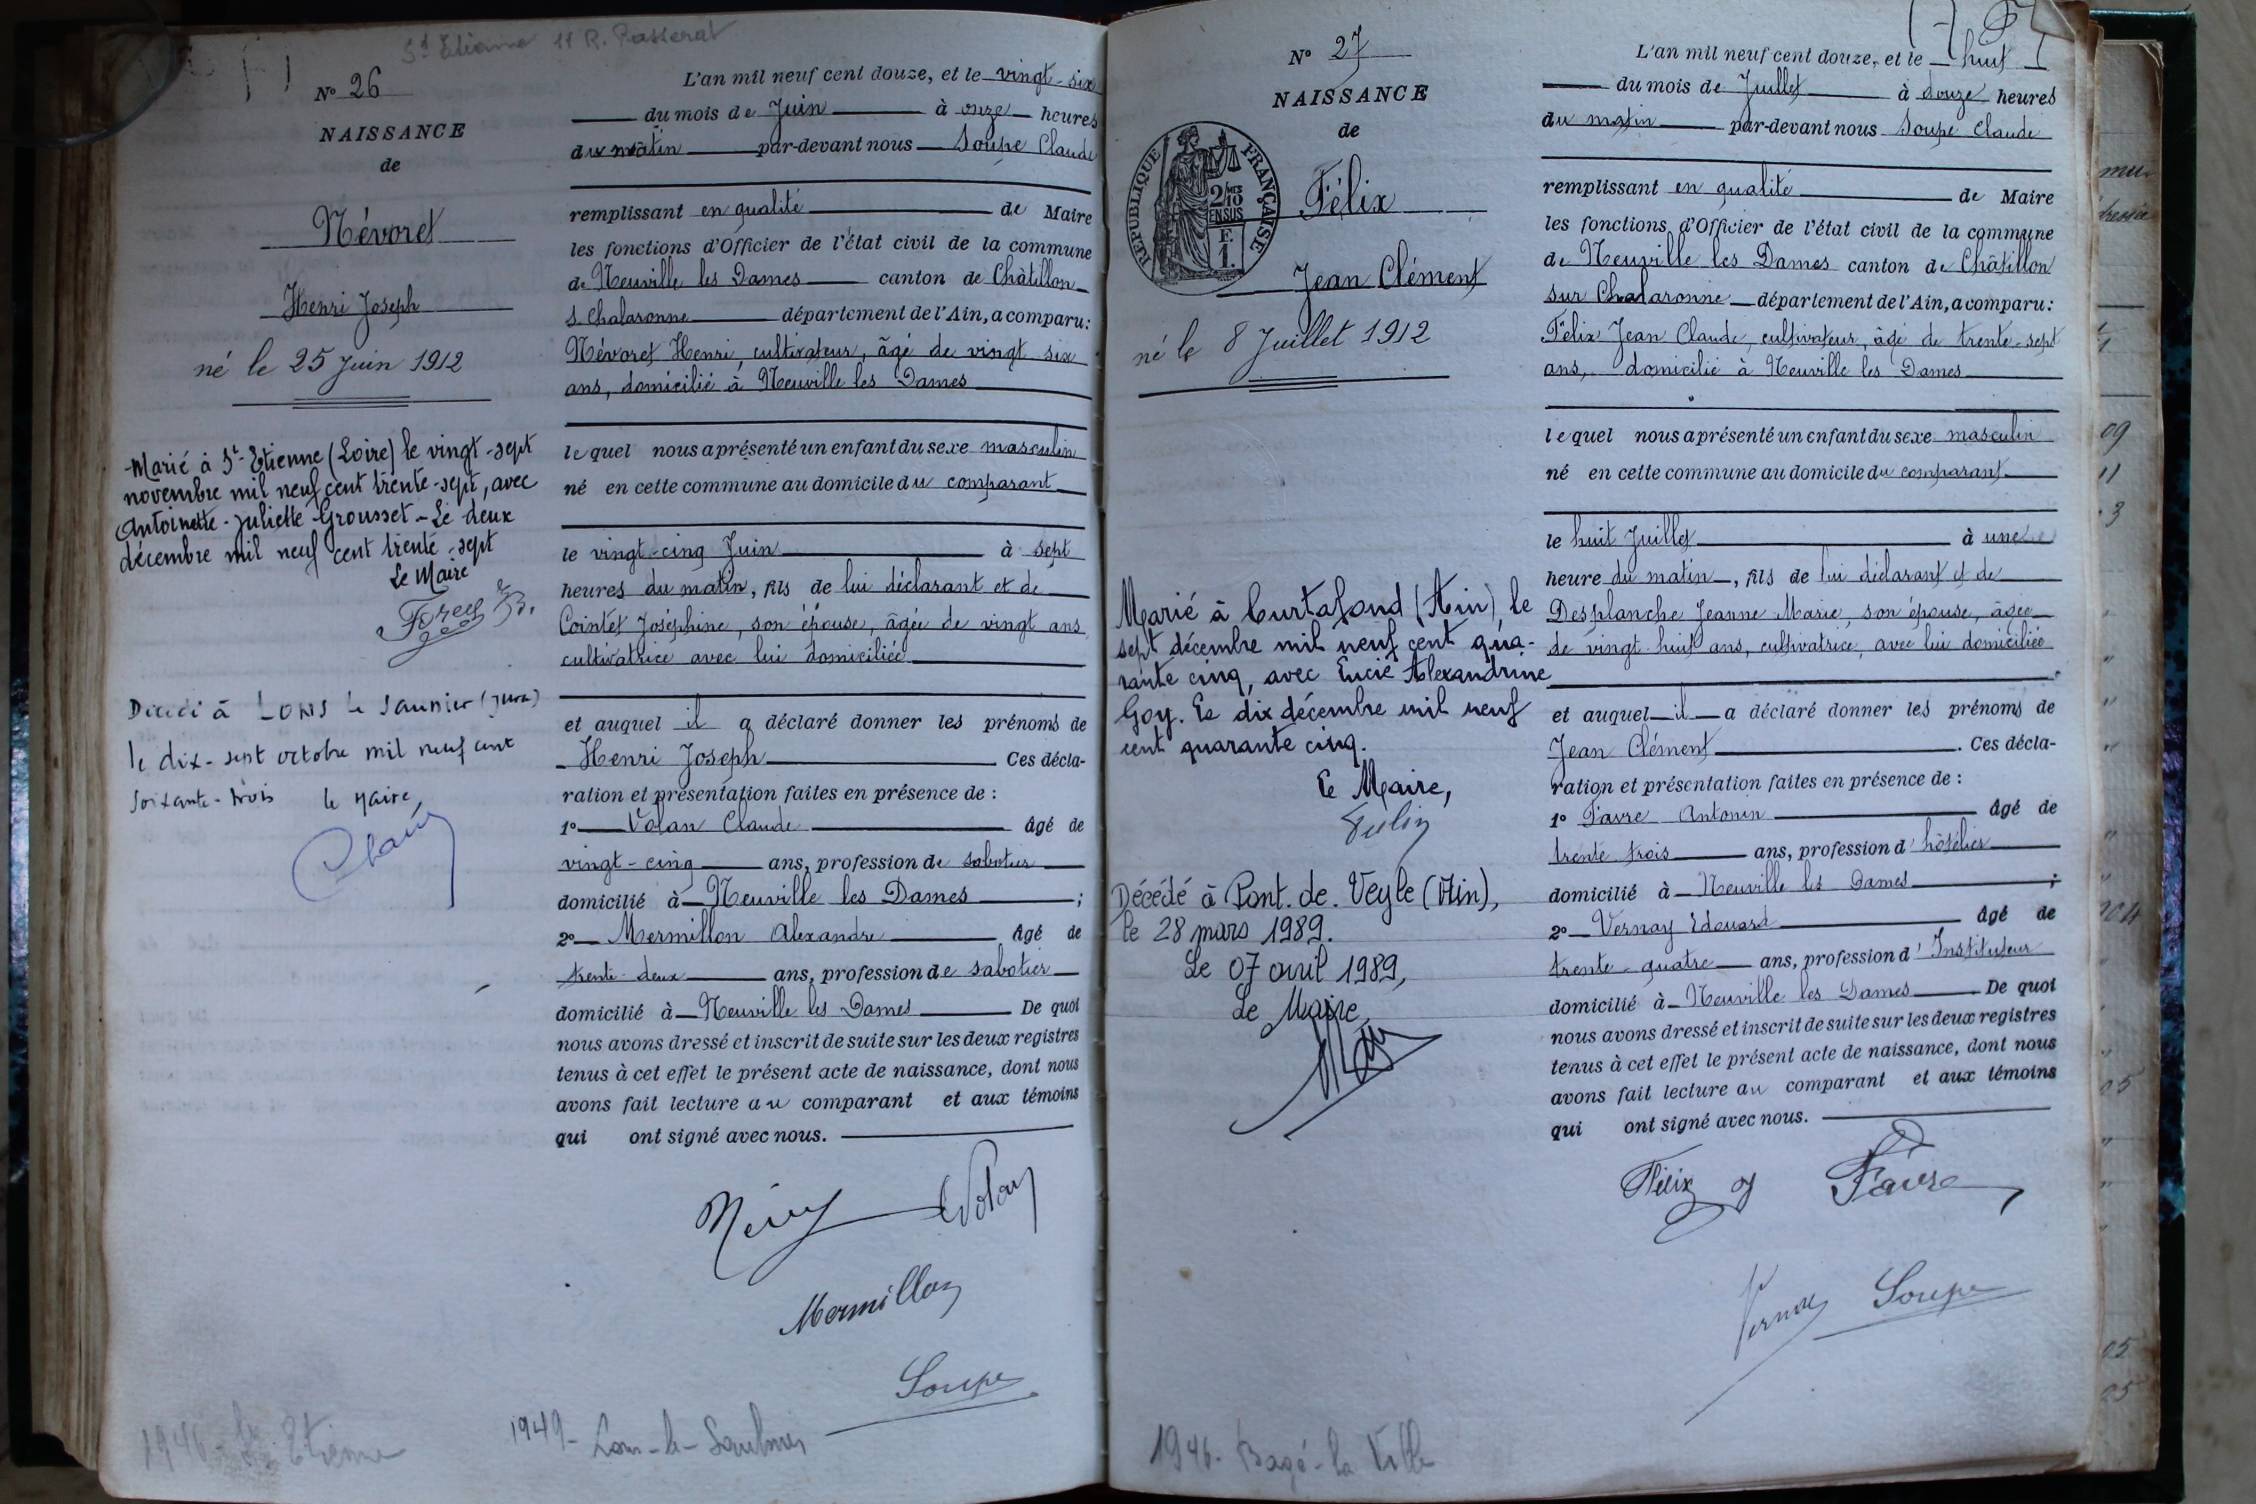 St Etienne 11 R. Passerat
N° 26
NAISSANCE
de
Névoret
Henri Joseph
né le 25 Juin 1912
Marié à St-Etienne (Loire) le vingt-sept
novembre mil neuf cent trente-sept, avec
Antoinette-Juliette Grousset - Le deux
décembre mil neuf cent trente-sept
Le Maire
Décédé à LONS le Saunier (Jura)
le dix-sept octobre mil neuf cent
soixante-trois le Maire,
L'an mil neuf cent douze, et le vingt-six
du mois de Juin à onze heures
du matin par-devant nous Soupe Claude
remplissant en qualité de Maire
les fonctions d'Officier de l'état civil de la commune
de Neuville les Dames canton de Châtillon
s. Chalaronne département de l'Ain, a comparu:
Névoret Henri, cultivateur, âgé de vingt six
ans, domicilié à Neuville les Dames
lequel nous a présenté un enfant du sexe masculin
né en cette commune au domicile du comparant
le vingt-cinq Juin à sept
heures du matin, fils de lui déclarant et de
Cointet Joséphine, son épouse, âgée de vingt ans
cultivatrice avec lui domiciliée
et auquel il a déclaré donner les prénoms de
Henri Joseph Ces décla-
ration et présentation faites en présence de :
1° Volan Claude âgé de
vingt-cinq ans, profession de sabotier
domicilié à Neuville les Dames ;
2° Mermillon Alexandre âgé de
trente-deux ans, profession de sabotier
domicilié à Neuville les Dames De quoi
nous avons dressé et inscrit de suite sur les deux registres
tenus à cet effet le présent acte de naissance, dont nous
avons fait lecture au comparant et aux témoins
qui ont signé avec nous.
Volan
Mermillon
Soupe
1946 - St Etienne
1949 - Lons-le-Saulnier
N° 27
NAISSANCE
de
RÉPUBLIQUE FRANÇAISE
2/10 MES
EN SUS
F.
1.
Félix
Jean Clément
né le 8 Juillet 1912
Marié à Curtafond (Ain) le
sept décembre mil neuf cent qua-
rante cinq, avec Lucie Alexandrine
Goy. Le dix décembre mil neuf
cent quarante cinq.
Le Maire,
Décédé à Pont.de.Veyle (Ain),
le 28 mars 1989.
Le 07 avril 1989,
Le Maire,
1946. Bagé-la Ville
L'an mil neuf cent douze, et le huit
du mois de Juillet à douze heures
du matin par-devant nous Soupe Claude
remplissant en qualité de Maire
les fonctions d'Officier de l'état civil de la commune
de Neuville les Dames canton de Châtillon
sur Chalaronne département de l'Ain, a comparu:
Félix Jean Claude, cultivateur, âgé de trente-sept
ans, domicilié à Neuville les Dames
lequel nous a présenté un enfant du sexe masculin
né en cette commune au domicile du comparant
le huit Juillet à une
heure du matin, fils de lui déclarant et de
Desplanche Jeanne Marie, son épouse, âgée
de vingt-huit ans, cultivatrice, avec lui domiciliée
et auquel il a déclaré donner les prénoms de
Jean Clément. Ces décla-
ration et présentation faites en présence de :
1° Favre Antonin âgé de
trente trois ans, profession d'hôtelier
domicilié à Neuville les Dames ;
2° Vernay Edouard âgé de
trente-quatre ans, profession d'Instituteur
domicilié à Neuville les Dames De quoi
nous avons dressé et inscrit de suite sur les deux registres
tenus à cet effet le présent acte de naissance, dont nous
avons fait lecture au comparant et aux témoins
qui ont signé avec nous.
Félix Favre
Vernay Soupe
09
11
3
204
05
05
05